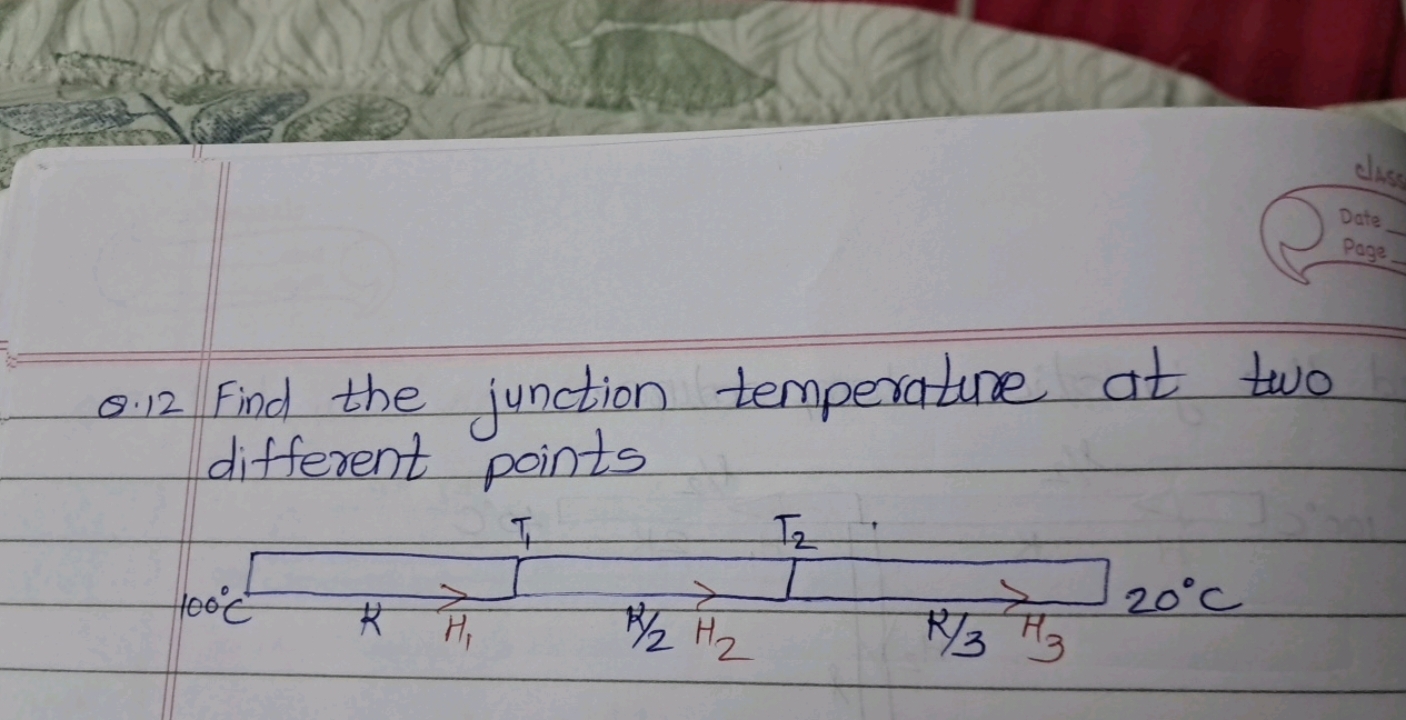 class
Date
Page
Q.12 Find the junction temperature at two
different points
T₁ T₂
100°C 20°C
K H₁ K/2 H₂ K/3 H₃